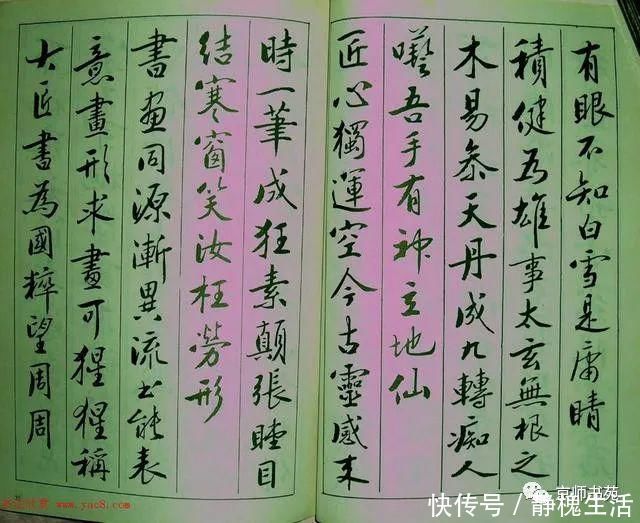 有眼不知白雪是庸睛
積健为雄事太玄無根之
木易参天丹成九轉痴人
囈吾手有神立地仙
匠心獨運空今古靈感来
時一筆成狂素顛張瞠目
结寒窗笑汝枉勞形
書画同源漸異流书能表
意畫形求畫可猩猩稱
大匠書為國粹望周周
www.yac8.com
京师书苑
快传号／静槐生活